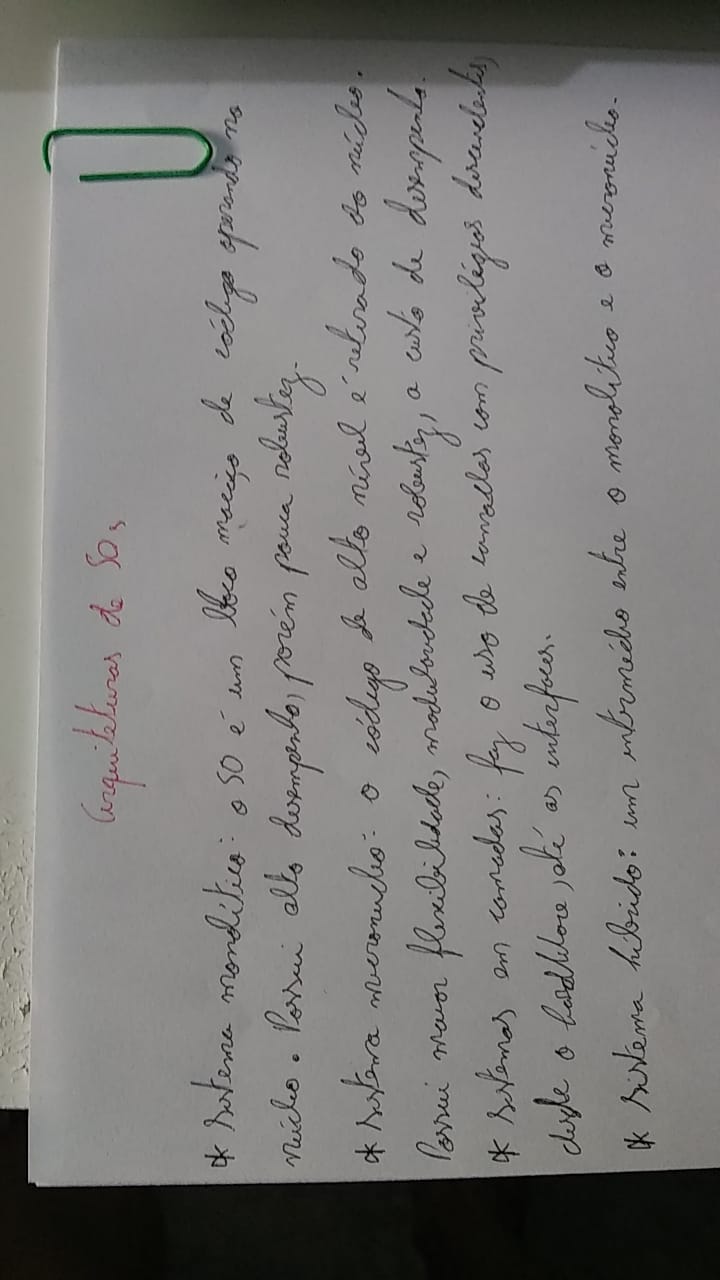 Arquiteturas de SOs
* Sistema monolítico: o SO é um bloco maciço de código operando no
núcleo. Possui alto desempenho, porém pouca robustez.
* Sistema micronucleo: o código de alto nível é retirado do núcleo.
Possui maior flexibilidade, modularidade e robustez, a custo de desempenho.
* Sistemas em camadas: faz o uso de camadas com privilégios descendentes,
desde o hardware, até as interfaces.
* Sistema híbrido: um intermédio entre o monolítico e o micronúcleo.